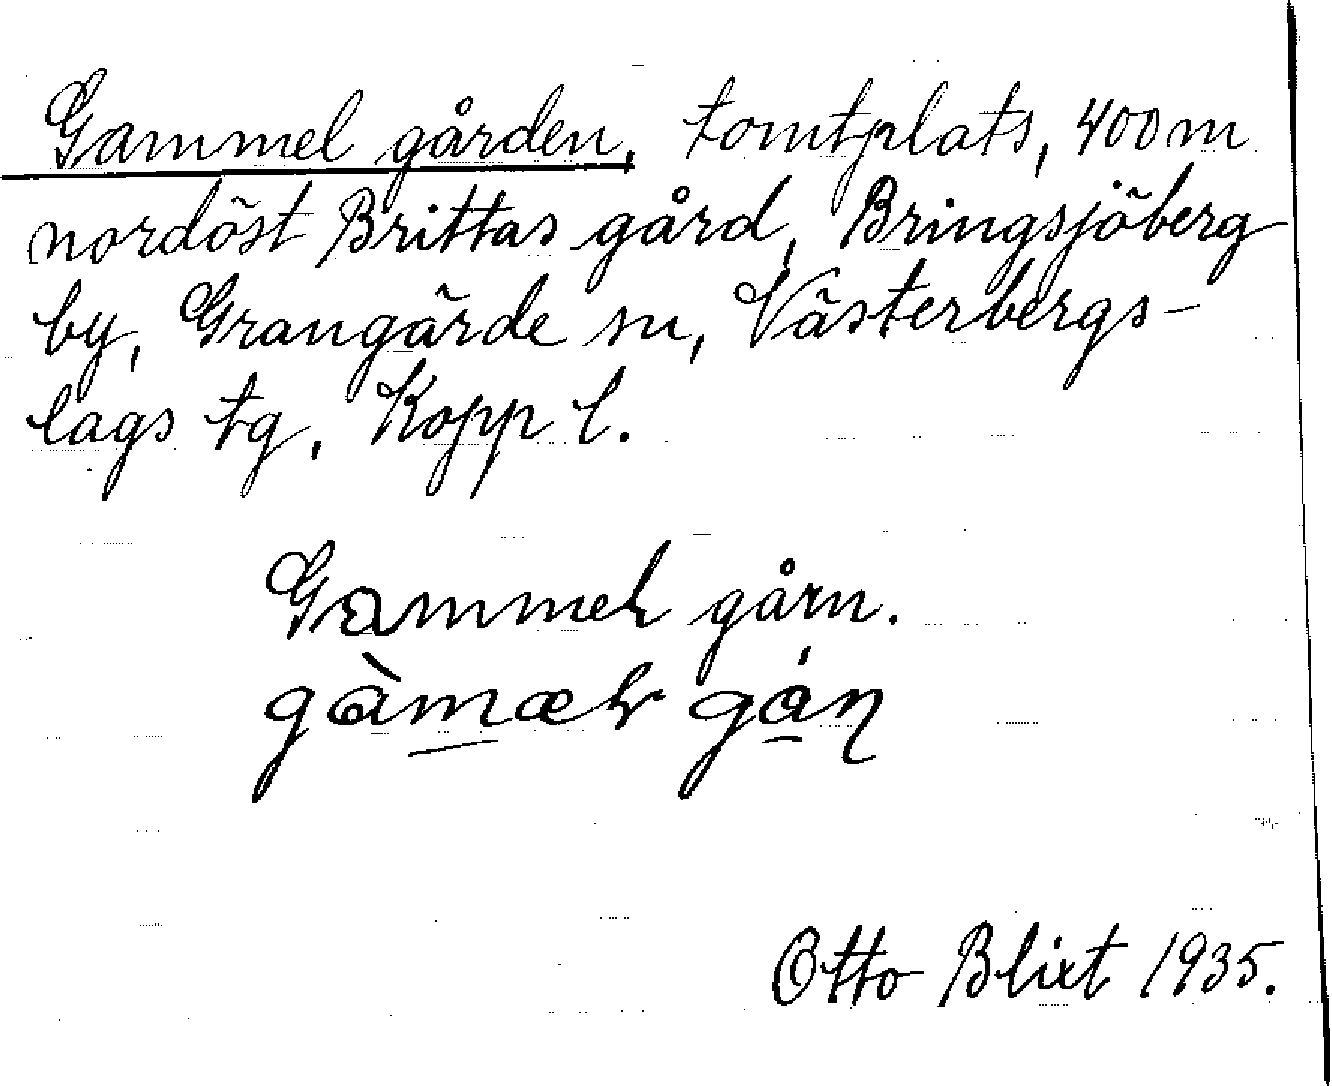 Gammel gården, tomtplats, 400 m
nordöst Brittas gård, Bringsjöberg
by, Grangärde sn, Västerbergs-
lags tg, Kopp l.
Gammeł gårn.
gàmæł gán
Otto Blixt 1935.